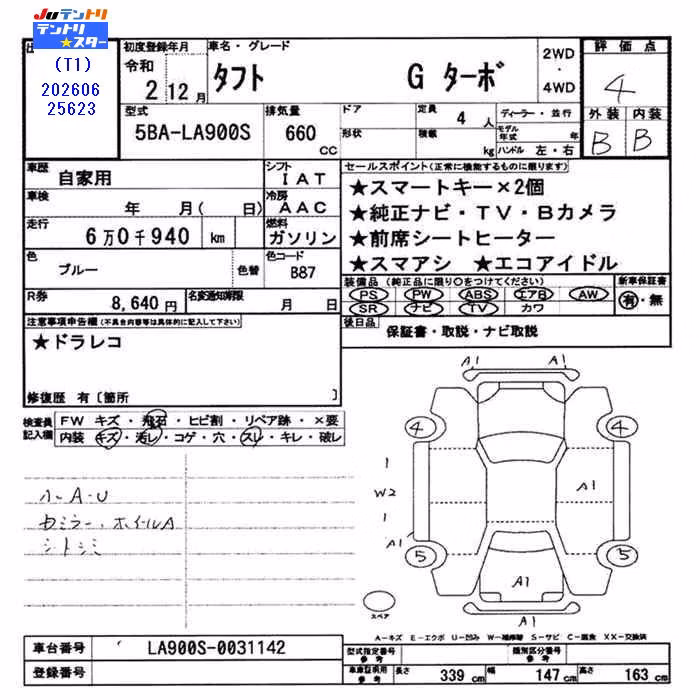 JUテントリ
テントリ★スター
(T1)
202606
25623
初度登録年月 車名・グレード
令和 2 12月 タフト G ターボ 2WD・4WD
評価点
4
外装 内装
B B
型式 排気量 ドア 定員 ディーラー・並行
5BA-LA900S 660 CC 形状 積載 4人 kg モデル年式 年 ハンドル 左・右
車歴 自家用 シフト IAT
車検 年 月( 日) 冷房 AAC
走行 6万0千940 km 燃料 ガソリン
色 ブルー 色替 色コード B87
R券 8,640円 名変通知期限 月 日
セールスポイント(正常に機能するものに限ります)
★スマートキー×2個
★純正ナビ・TV・Bカメラ
★前席シートヒーター
★スマアシ ★エコアイドル
装備品 (純正品に限り○をつけてください) 新車保証書
PS PW ABS エアB AW 有・無
SR ナビ TV カワ
後日品 保証書・取説・ナビ取説
注意事項申告欄(不具合内容等は具体的に記入して下さい)
★ドラレコ
修復歴 有〔箇所 〕
検査員記入欄
FW キズ・飛石・ヒビ割・リペア跡・×要
内装 キズ・汚レ・コゲ・穴・スレ・キレ・破レ
小A-U
ミラー・ホイルA
シートシミ
A1 A1
4 4
1
W2
1
A1
A1
5 5
A1
A1
スペア
A-キズ E-エクボ U-凹み W-補修跡 S-サビ C-腐食 XX-交換済
車台番号 LA900S-0031142
登録番号
型式指定番号 参考 類別区分番号 参考
車庫証明用 参考 長さ 339cm 幅 147cm 高さ 163cm